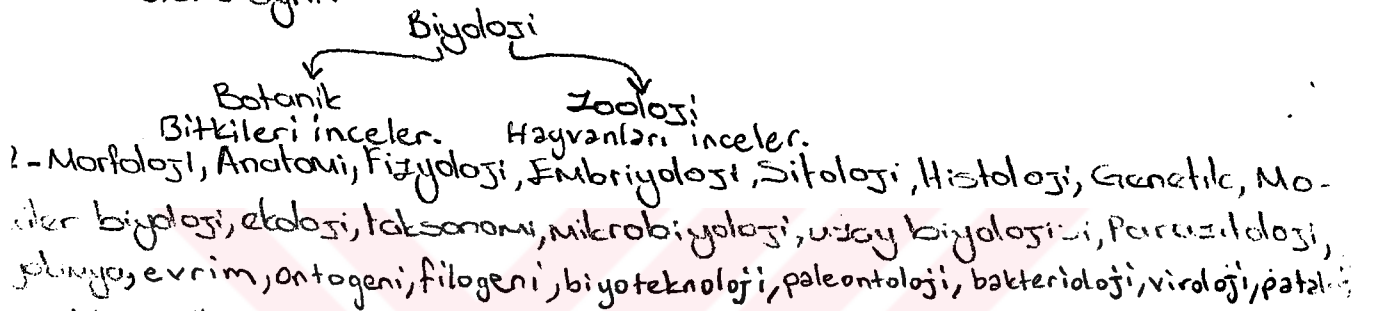 Biyoloji
Botanik Zooloji
Bitkileri inceler. Hayvanları inceler.
2-Morfoloji, Anatomi, Fizyoloji, Embriyoloji, Sitoloji, Histoloji, Genetik, Mo-
biyoloji, ekoloji, taksonomi, Mikrobiyoloji, uzay biyolojisi, Parazitoloji,
evrim, ontogeni, filogeni, biyoteknoloji, paleontoloji, bakterioloji, viroloji,